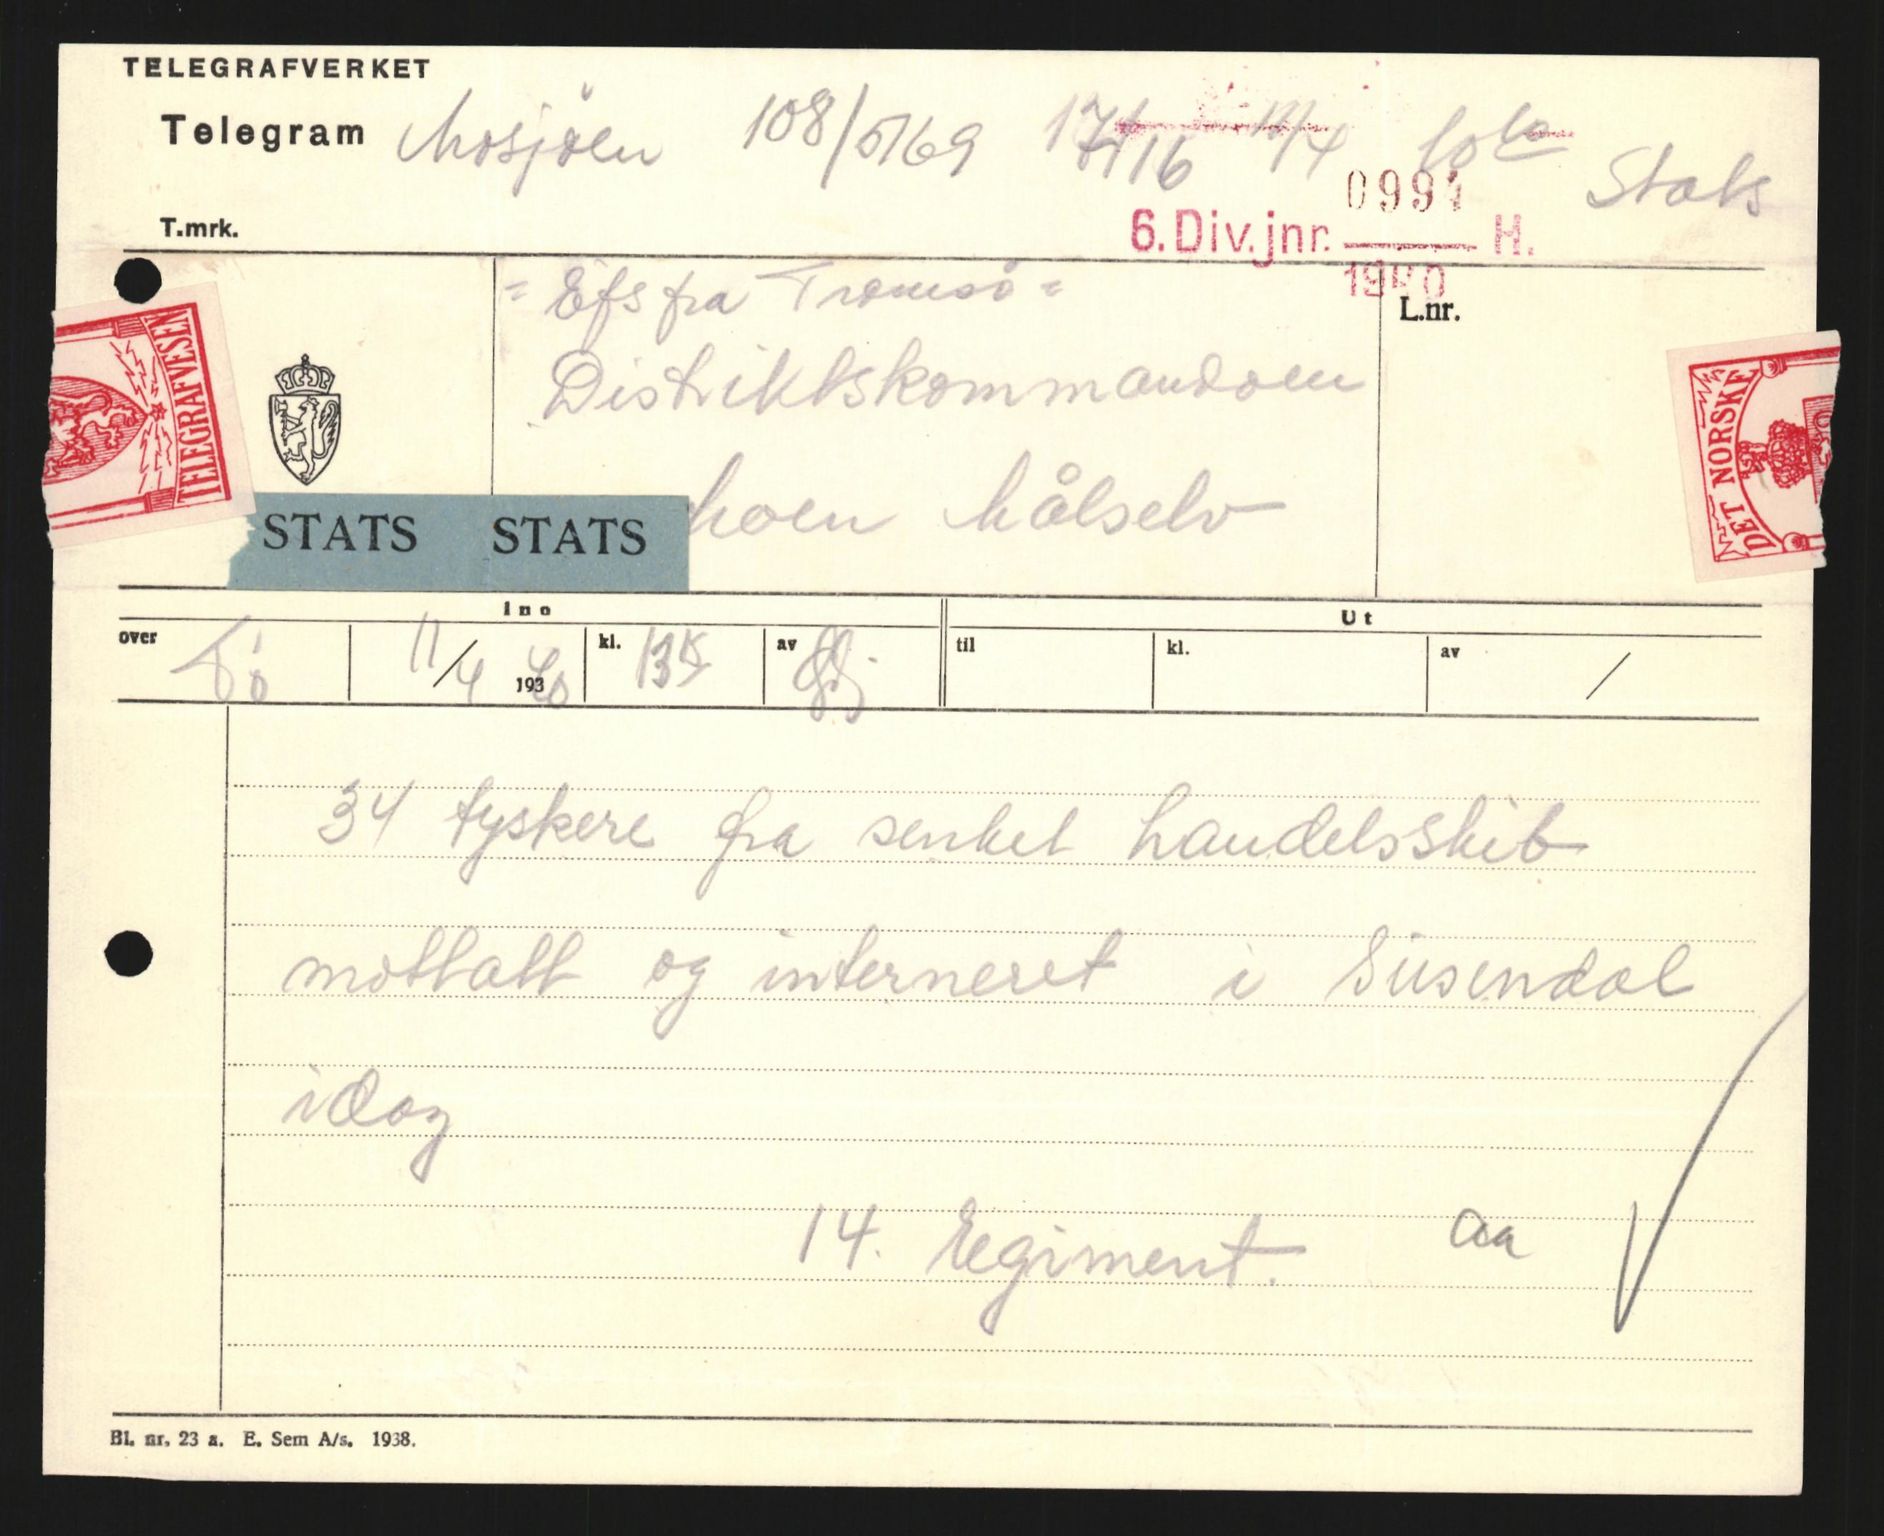 TELEGRAFVERKET
Telegram Mosjöen 108/5169 17/16 11/4 Stats
0994
T.mrk.
6.Div.jnr. H.
1940
= Efs fra Tromsö =
L.nr.
Distriktskommandoen
Moen Målselv
TELEGRAFVESEN
DET NORSKE
STATS STATS
Inn Ut
over Tö 11/4 193 40 kl. 135 av til kl. av /
34 tyskere fra senket handelsskib
mottatt og interneret i Susendal
idag
14. Regiment. aa
Bl. nr. 23 a. E. Sem A/s. 1938.